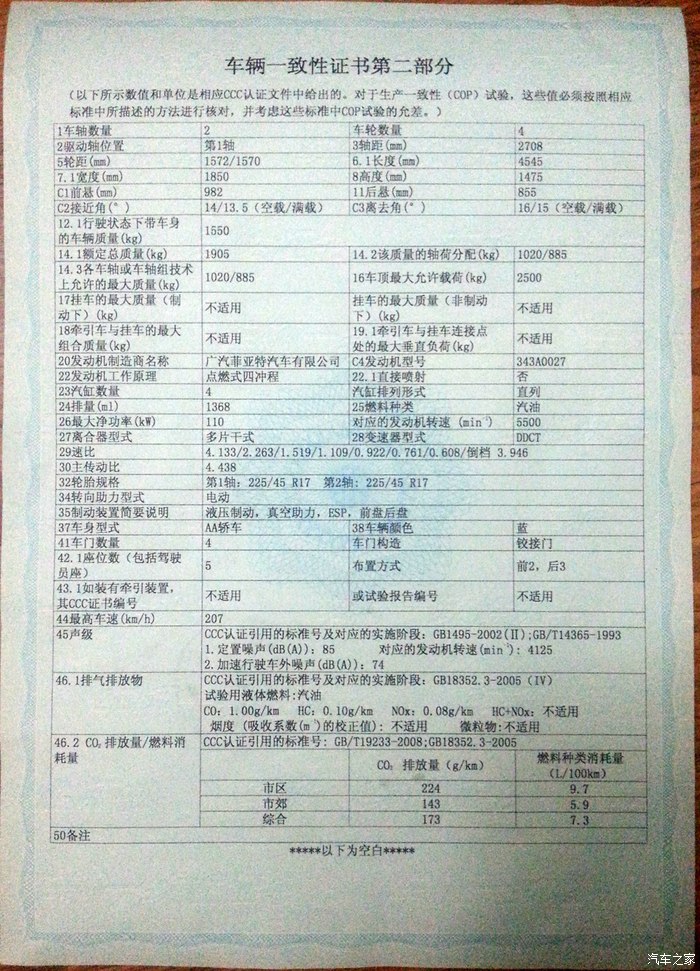 车辆一致性证书第二部分
(以下所示数值和单位是相应CCC认证文件中给出的。对于生产一致性(COP)试验，这些值必须按照相应
标准中所描述的方法进行核对，并考虑这些标准中COP试验的允差。)
1车轴数量 2 车轮数量 4
2驱动轴位置 第1轴 3轴距(mm) 2708
5轮距(mm) 1572/1570 6.1长度(mm) 4545
7.1宽度(mm) 1850 8高度(mm) 1475
C1前悬(mm) 982 11后悬(mm) 855
C2接近角(°) 14/13.5(空载/满载) C3离去角(°) 16/15(空载/满载)
12.1行驶状态下带车身
的车辆质量(kg) 1550
14.1额定总质量(kg) 1905 14.2该质量的轴荷分配(kg) 1020/885
14.3各车轴或车轴组技术
上允许的最大质量(kg) 1020/885 16车顶最大允许载荷(kg) 2500
17挂车的最大质量(制
动下)(kg) 不适用 挂车的最大质量(非制动
下)(kg) 不适用
18牵引车与挂车的最大
组合质量(kg) 不适用 19.1牵引车与挂车连接点
处的最大垂直负荷(kg) 不适用
20发动机制造商名称 广汽菲亚特汽车有限公司 C4发动机型号 343A0027
22发动机工作原理 点燃式四冲程 22.1直接喷射 否
23汽缸数量 4 汽缸排列形式 直列
24排量(ml) 1368 25燃料种类 汽油
26最大净功率(kW) 110 对应的发动机转速 (min⁻¹) 5500
27离合器型式 多片干式 28变速器型式 DDCT
29速比 4.133/2.263/1.519/1.109/0.922/0.761/0.608/倒档 3.946
30主传动比 4.438
32轮胎规格 第1轴: 225/45 R17 第2轴: 225/45 R17
34转向助力型式 电动
35制动装置简要说明 液压制动，真空助力，ESP，前盘后盘
37车身型式 AA轿车 38车辆颜色 蓝
41车门数量 4 车门构造 铰接门
42.1座位数(包括驾驶
员座) 5 布置方式 前2，后3
43.1如装有牵引装置，
其CCC证书编号 不适用 或试验报告编号 不适用
44最高车速(km/h) 207
45声级 CCC认证引用的标准号及对应的实施阶段: GB1495-2002(Ⅱ);GB/T14365-1993
1.定置噪声(dB(A)): 85 对应的发动机转速(min⁻¹): 4125
2.加速行驶车外噪声(dB(A)): 74
46.1排气排放物 CCC认证引用的标准号及对应的实施阶段: GB18352.3-2005 (IV)
试验用液体燃料:汽油
CO: 1.00g/km HC: 0.10g/km NOx: 0.08g/km HC+NOx: 不适用
烟度 (吸收系数(m⁻¹)的校正值): 不适用 微粒物:不适用
46.2 CO₂ 排放量/燃料消
耗量 CCC认证引用的标准号: GB/T19233-2008;GB18352.3-2005
CO₂ 排放量(g/km) 燃料种类消耗量
(L/100km)
市区 224 9.7
市郊 143 5.9
综合 173 7.3
50备注
*****以下为空白*****
汽车之家